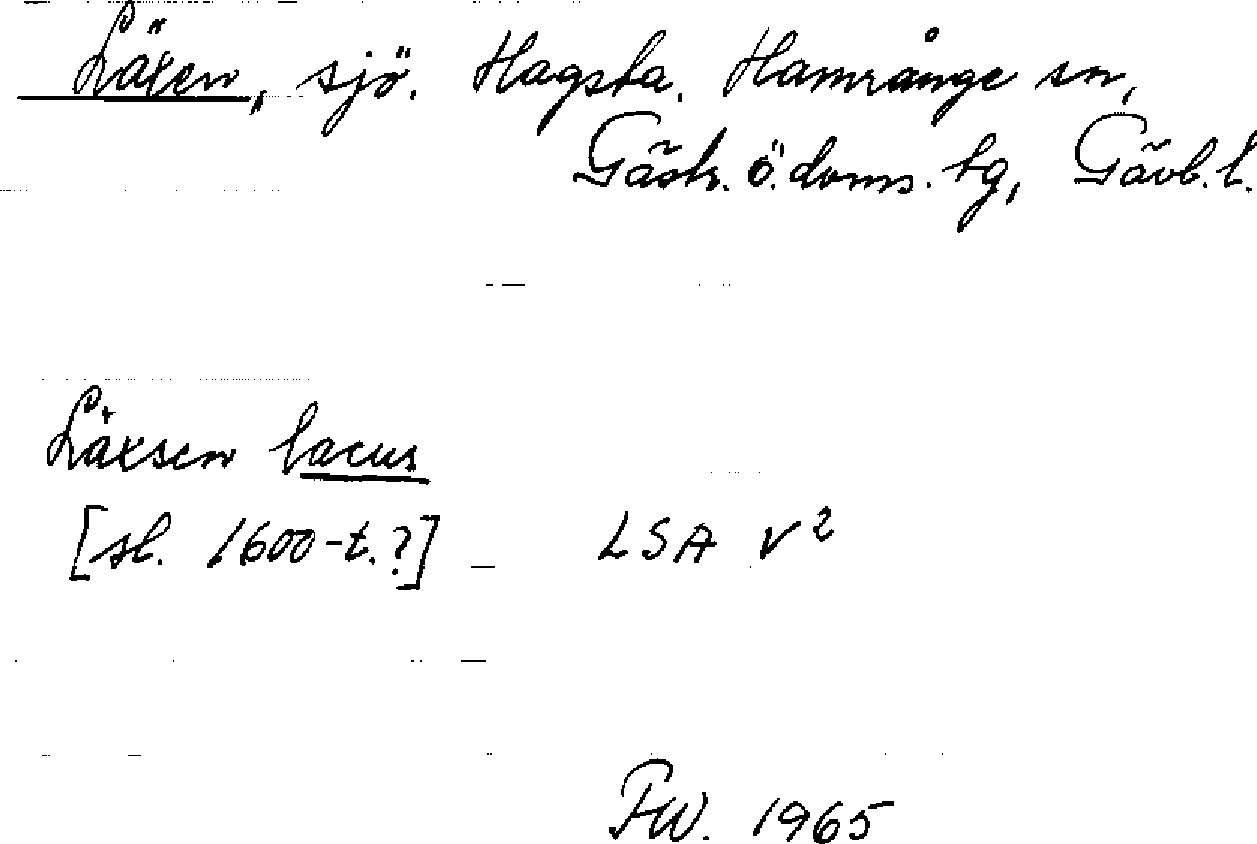 Läxen, sjö. Hagsta. Hamrånge sn,
Gästr. ö. doms. tg, Gävb. l.
Läxsen lacus
[sl. 1600-t.?] – LSA V²
FW. 1965